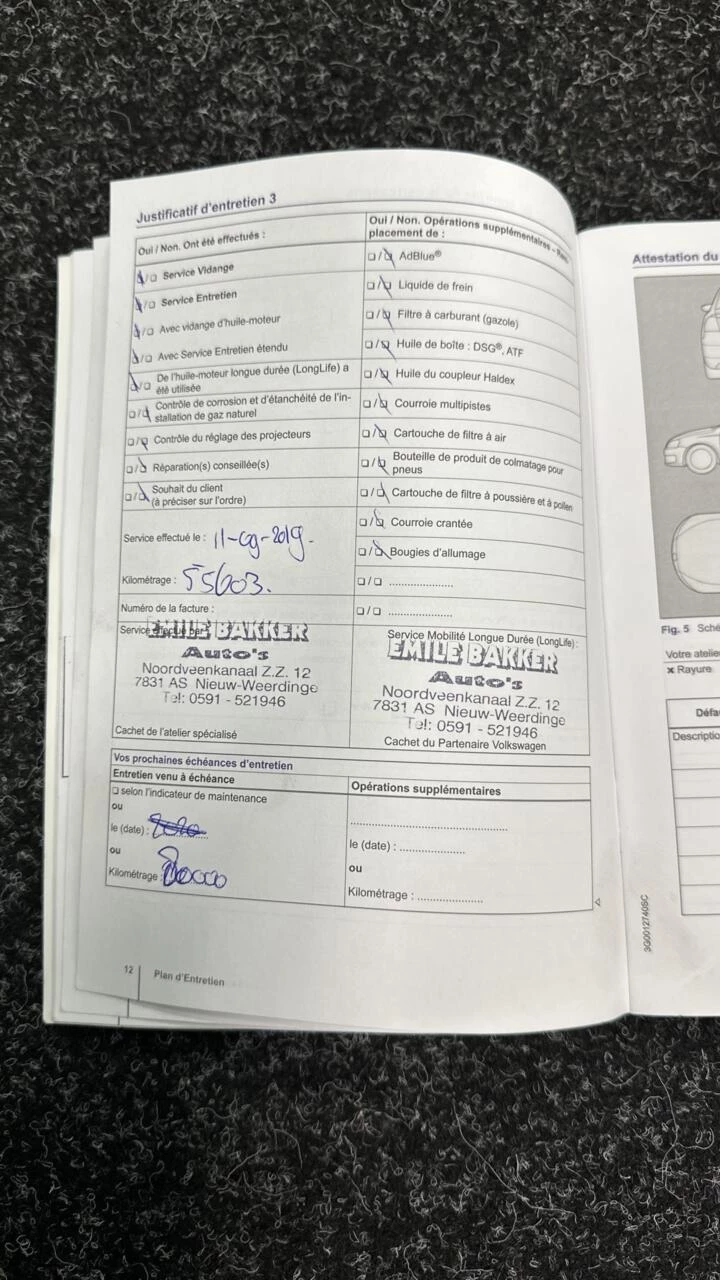 Justificatif d'entretien 3
Oui / Non. Ont été effectués :
❑/❑ Service Vidange
❑/❑ Service Entretien
❑/❑ Avec vidange d'huile-moteur
❑/❑ Avec Service Entretien étendu
❑/❑ De l'huile-moteur longue durée (LongLife) a
été utilisée
❑/❑ Contrôle de corrosion et d'étanchéité de l'in-
stallation de gaz naturel
❑/❑ Contrôle du réglage des projecteurs
❑/❑ Réparation(s) conseillée(s)
❑/❑ Souhait du client
(à préciser sur l'ordre)
Service effectué le : 11-09-2019.
Kilométrage : 55603.
Numéro de la facture :
Service effectué par
EMILE BAKKER
Auto's
Noordveenkanaal Z.Z. 12
7831 AS Nieuw-Weerdinge
Tel: 0591 - 521946
Cachet de l'atelier spécialisé
Oui / Non. Opérations supplémentaires -
placement de :
❑/❑ AdBlue®
❑/❑ Liquide de frein
❑/❑ Filtre à carburant (gazole)
❑/❑ Huile de boîte : DSG®, ATF
❑/❑ Huile du coupleur Haldex
❑/❑ Courroie multipistes
❑/❑ Cartouche de filtre à air
❑/❑ Bouteille de produit de colmatage pour
pneus
❑/❑ Cartouche de filtre à poussière et à pollen
❑/❑ Courroie crantée
❑/❑ Bougies d'allumage
❑/❑ ......................
❑/❑ ......................
Service Mobilité Longue Durée (LongLife) :
EMILE BAKKER
Auto's
Noordveenkanaal Z.Z. 12
7831 AS Nieuw-Weerdinge
Tel: 0591 - 521946
Cachet du Partenaire Volkswagen
Vos prochaines échéances d'entretien
Entretien venu à échéance
❑ selon l'indicateur de maintenance
ou
le (date) : 2020
ou
Kilométrage : 80000
Opérations supplémentaires
......................................................
le (date) : ......................
ou
Kilométrage : ......................
12 Plan d'Entretien
Attestation du
Fig. 5 Sché
Votre atelie
× Rayure
Défa
Descriptio
3G0012740SC